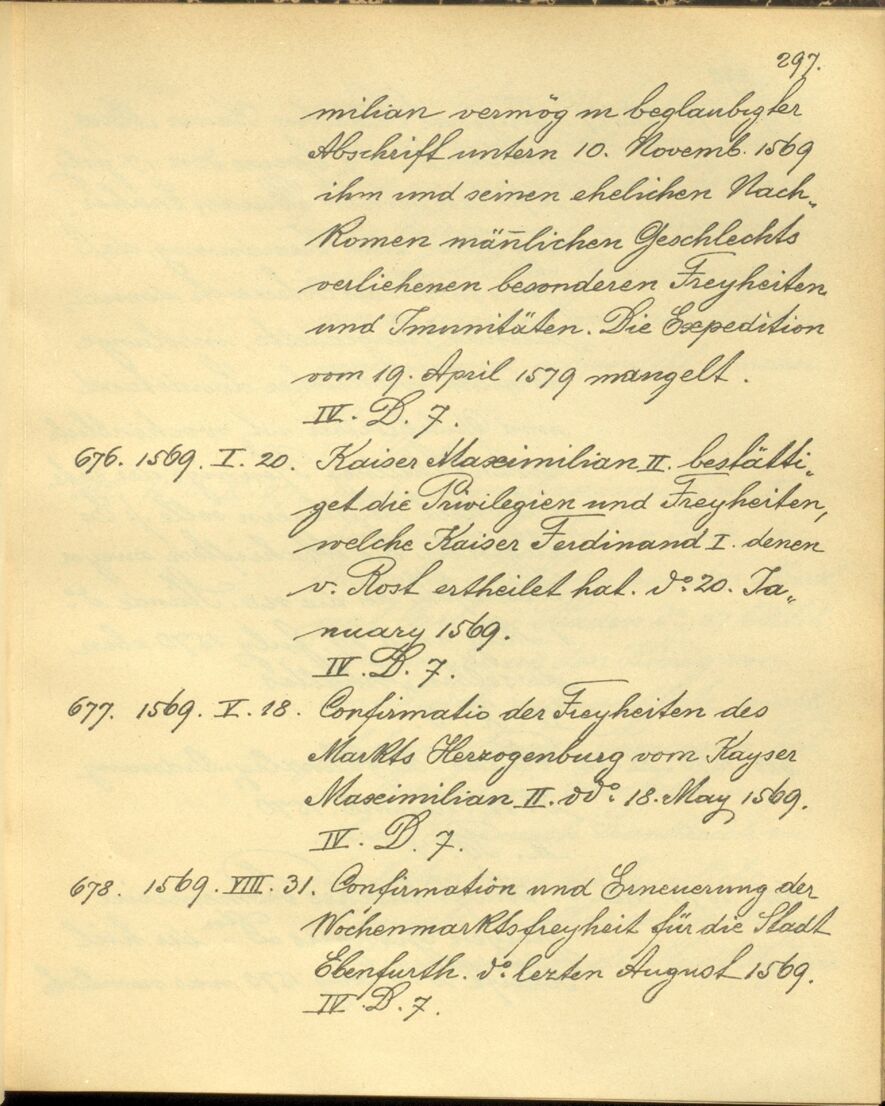 297.
milian vermög in beglaubigter
Abschrift untern 10. Novemb. 1569
ihm und seinen ehelichen Nach„
komen mäñlichen Geschlechts
verliehenen besonderen Freyheiten
und Imunitäten. Die Expedition
vom 19. April 1579 mangelt.
IV. D. 7.
676. 1569. I. 20. Kaiser Maximilian II. bestätti„
get die Privilegien und Freyheiten,
welche Kaiser Ferdinand I. denen
v. Rost ertheilet hat. do. 20. Ja„
nuary 1569.
IV. D. 7.
677. 1569. V. 18. Confirmatio der Freyheiten des
Markts Herzogenburg vom Kayser
Maximilian II. ddo. 18. May 1569.
IV. D. 7.
678. 1569. VIII. 31. Confirmation und Erneuerung der
Wochenmarktsfreyheit für die Stadt
Ebenfurth. do. lezten August 1569.
IV. D. 7.